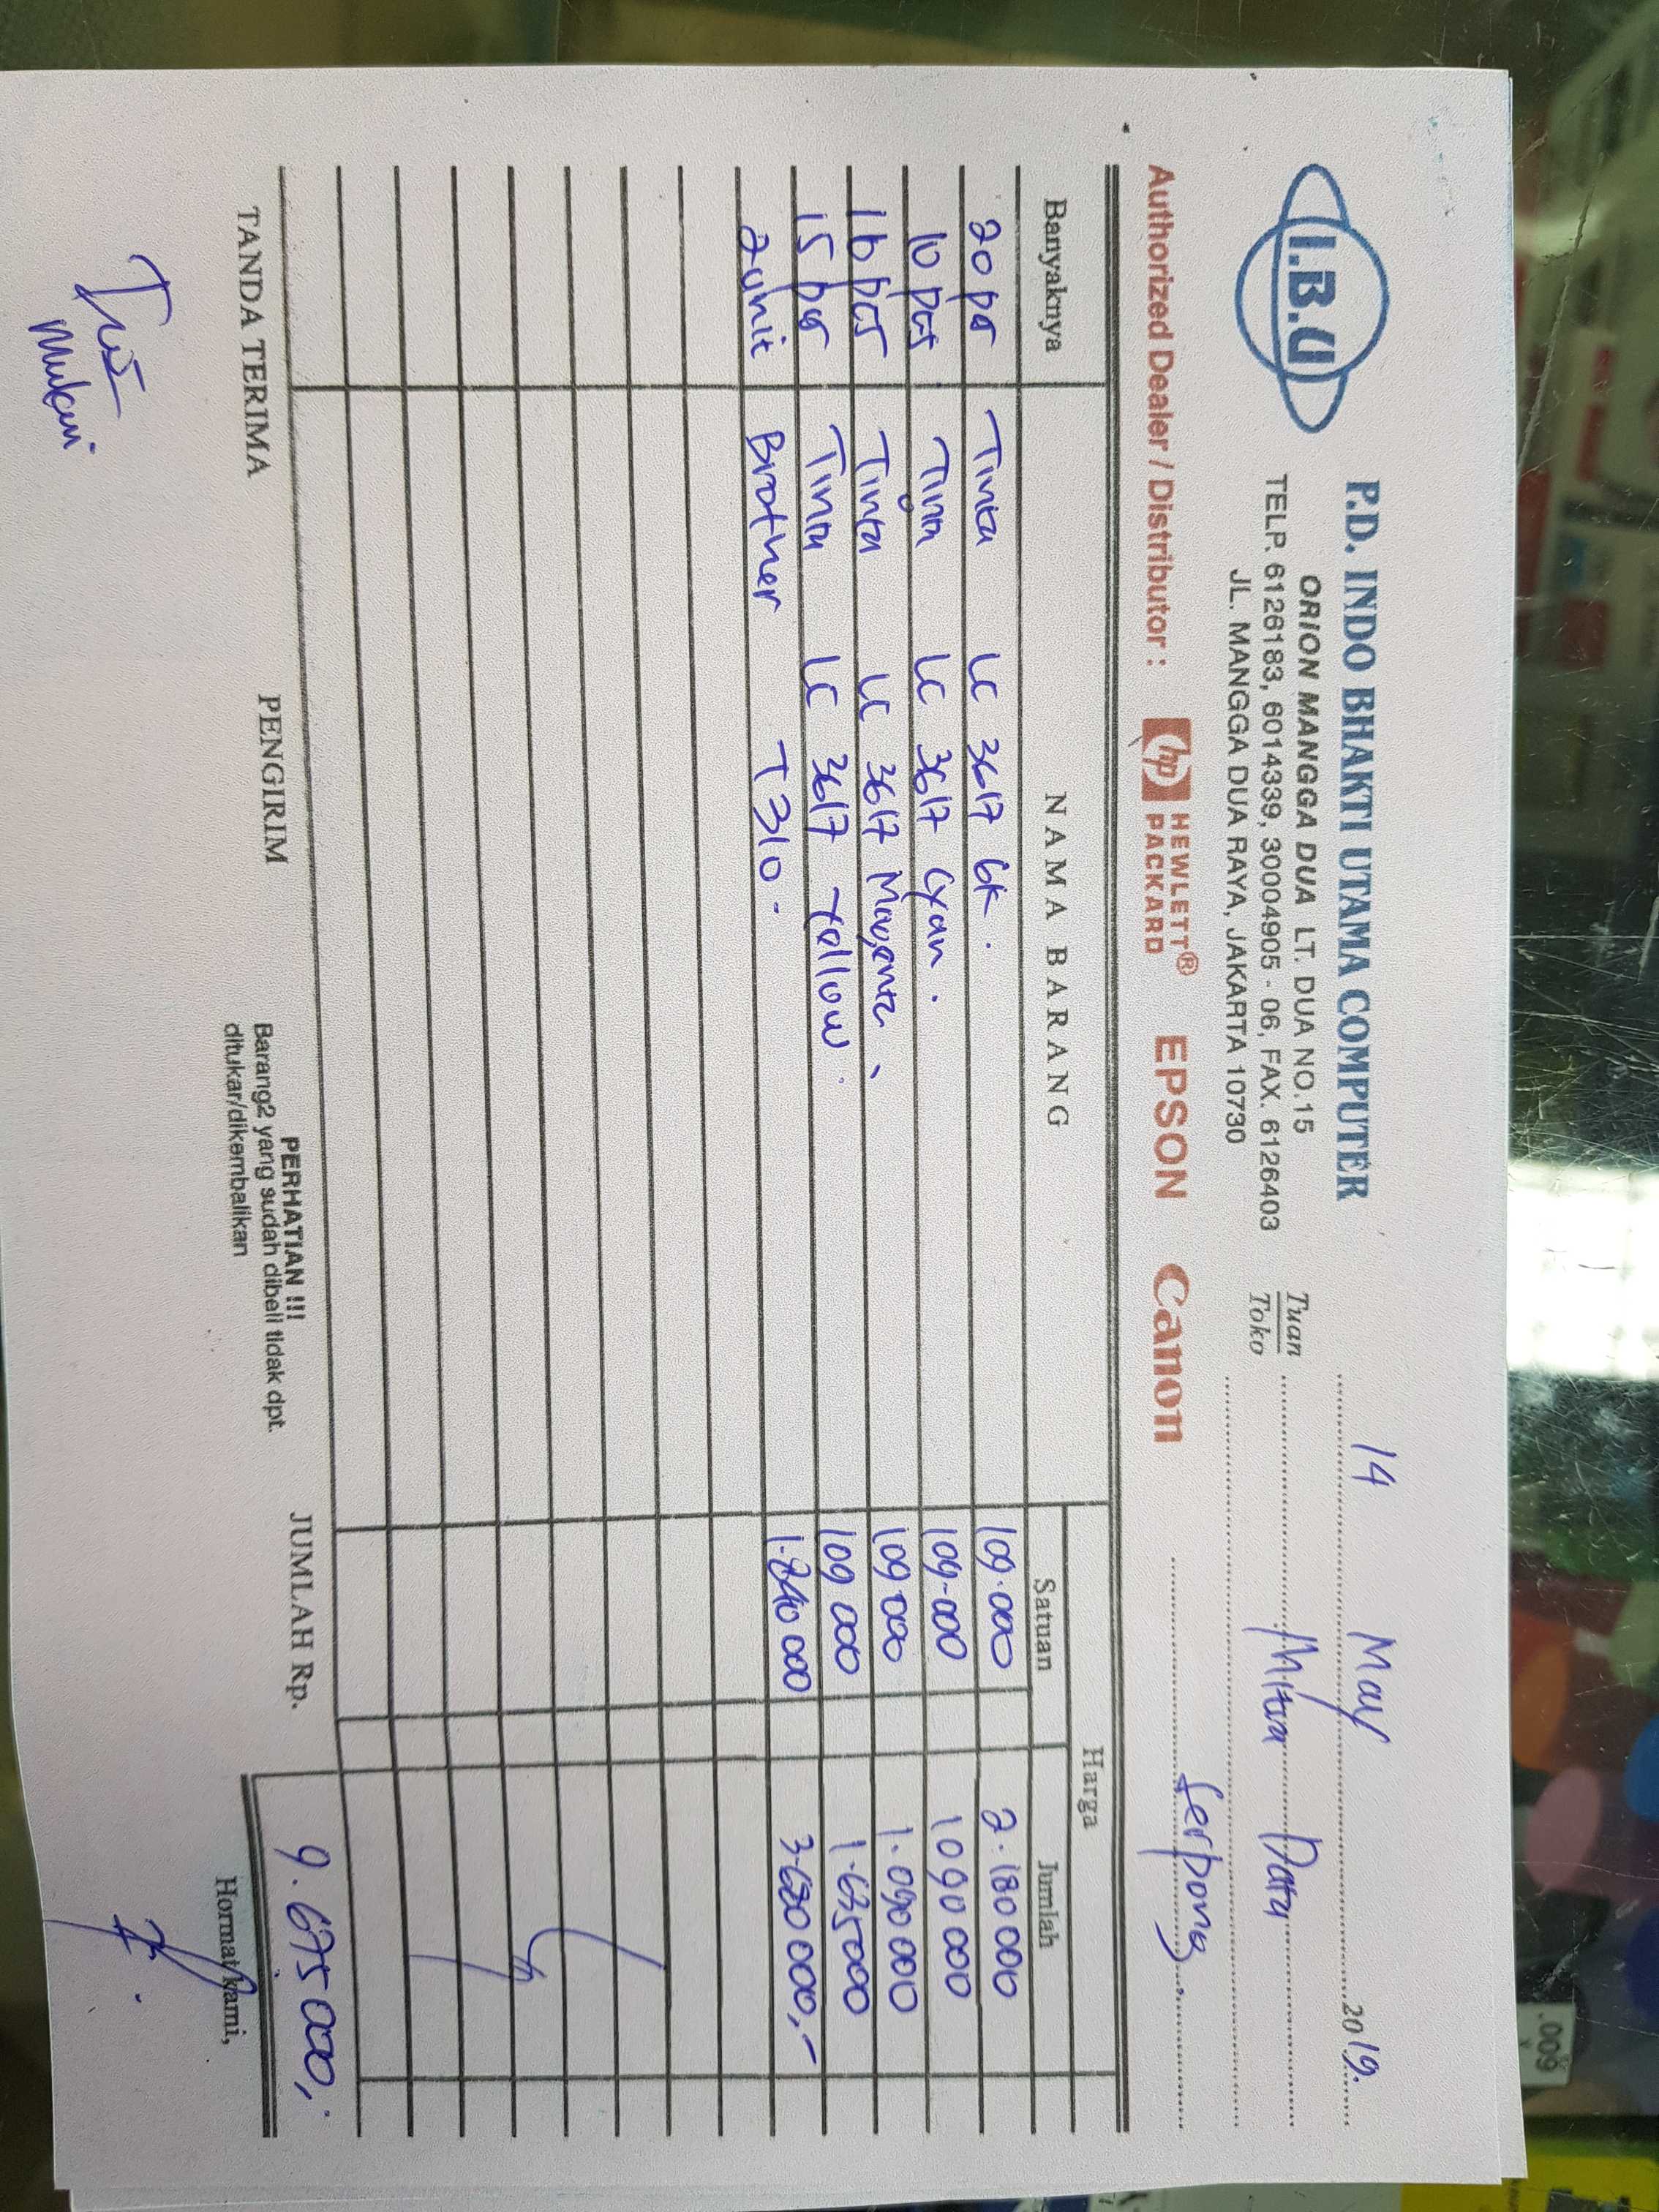 I.B.U
P.D. INDO BHAKTI UTAMA COMPUTER
ORION MANGGA DUA LT. DUA NO.15
TELP. 6126183, 6014339, 30004905 - 06, FAX. 6126403
JL. MANGGA DUA RAYA, JAKARTA 10730
14 May 2019.
Tuan
Toko
Mitra Data
Serpong
Authorized Dealer / Distributor : hp HEWLETT® PACKARD EPSON Canon
Banyaknya NAMA BARANG Harga
Satuan Jumlah
20 pcs Tinta LC 3617 bk. 109.000 2.180 000
10 pcs Tinta LC 3617 Cyan. 109.000 1090 000
10 pcs Tinta LC 3617 Magenta 109 000 1.090 000
15 pcs Tinta LC 3617 Yellow. 109 000 1.635000
2 unit Brother T310. 1.840 000 3.680 000,-
TANDA TERIMA PENGIRIM
PERHATIAN !!!
Barang2 yang sudah dibeli tidak dpt.
ditukar/dikembalikan
JUMLAH Rp. 9.675 000,-
Hormat kami,
.009